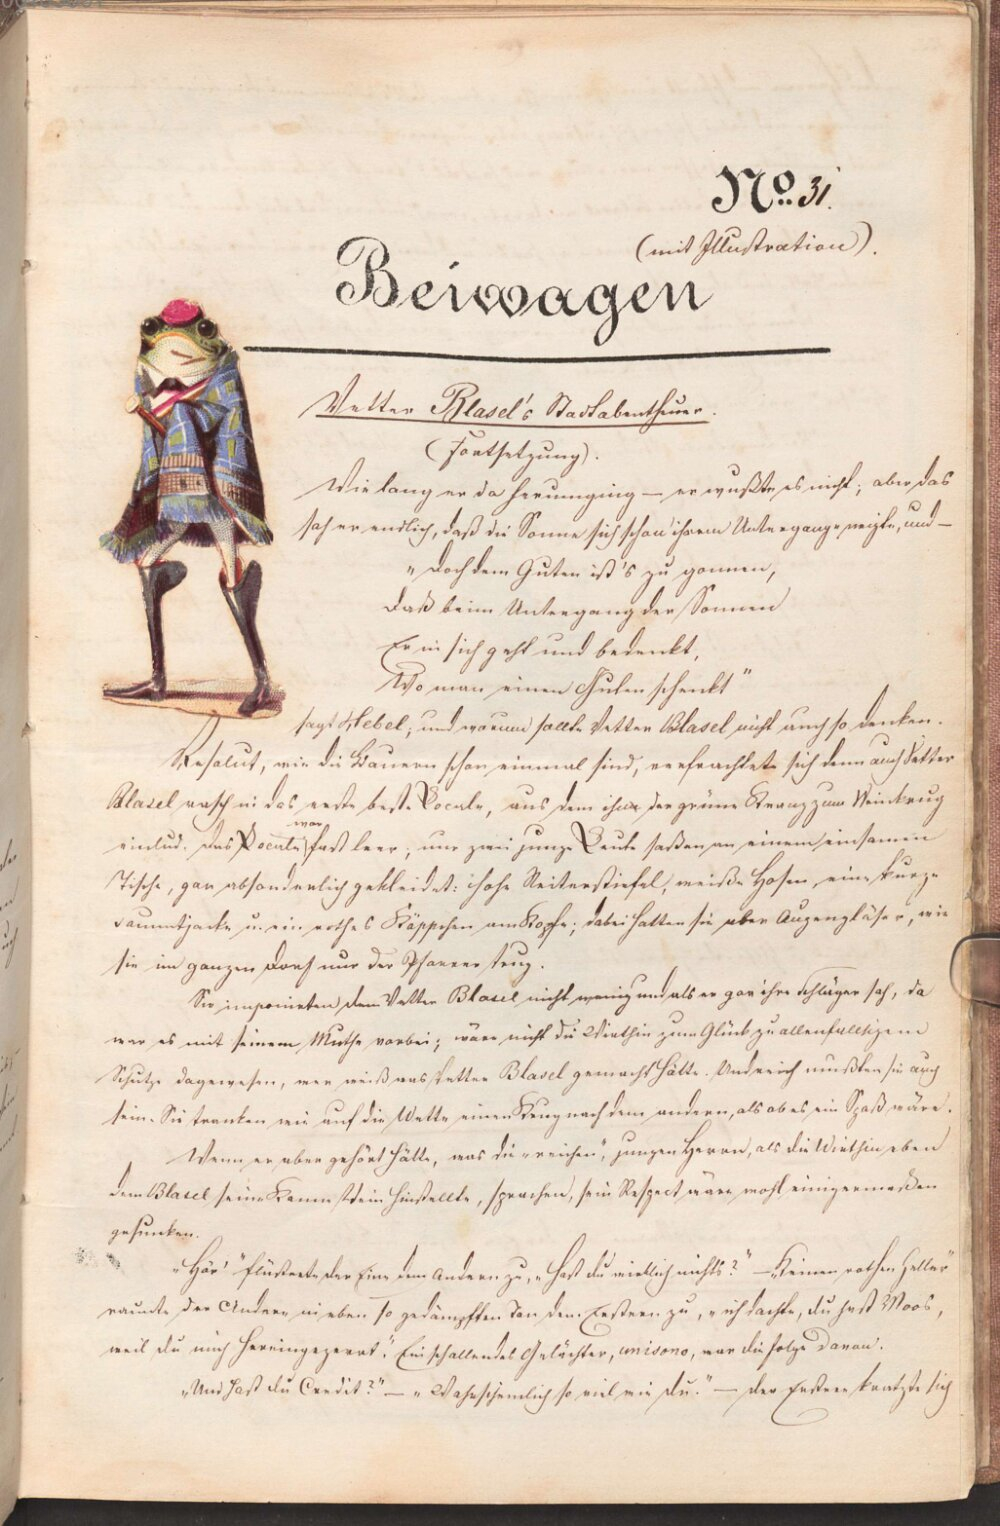 No. 31.
(mit Illustration).
Beiwagen
Vetter Blasel's Stadtabentheuer.
(Fortsetzung).
Wie lang er da herumging — er wußte es nicht; aber das
sah er endlich, daß die Sonne sich schon ihrem Untergange neigte, und —
„Doch dem Guten ist's zu gonnen,
Daß beim Untergang der Sonnen
Er in sich geht und bedenkt,
Wo man einen Guten schenkt"
sagt Hebel, und warum sollte Vetter Blasel nicht auch so denken.
Resolut, wie die Bauern schon einmal sind, verfrachtete sich denn auch Vetter
Blasel rasch in das erste beste Locale, aus dem ihm der grüne Kranz zum Weinkrug
einlud. Das Locale war fast leer; nur zwei junge Leute saßen an einem einsamen
Tische, gar absonderlich gekleidet: hohe Reiterstiefel, weiße Hosen, eine kurze
Sammtjacke u. ein rothes Käppchen am Kopfe; dabei hatten sie aber Augengläser, wie
sie im ganzen Dorf nur der Pfarrer trug.
Sie imponirten dem Vetter Blasel nicht wenig und als er gar ihre Schläger sah, da
war es mit seinem Muthe vorbei; wäre nicht die Wirthin zum Glück zu allenfallsigem
Schutze dagewesen, wer weiß was Vetter Blasel gemacht hätte. Und reich mußten sie auch
sein. Sie tranken wie auf die Wette einen Krug nach dem andern, als ob es ein Spaß wäre.
Wenn er aber gehört hätte, was die „reichen", jungen Herrn, als die Wirthin eben
dem Blasel seine Kanne Wein hinstellte, sprachen, sein Respect wäre wohl einigermaßen
gesunken.
„Hör' flüsterte der Eine dem Andern zu, „hast du wirklich nichts?" — „Keinen rothen Heller"
raunte der Andere in eben so gedämpften Ton dem Erstern zu, „ich dachte, du hast Moos,
weil du mich hereingezerrt". Ein schallendes Gelächter, unisono, war die Folge davon.
„Und hast du Credit?" — „Wahrscheinlich so viel wie du." — der Erstere kratzte sich